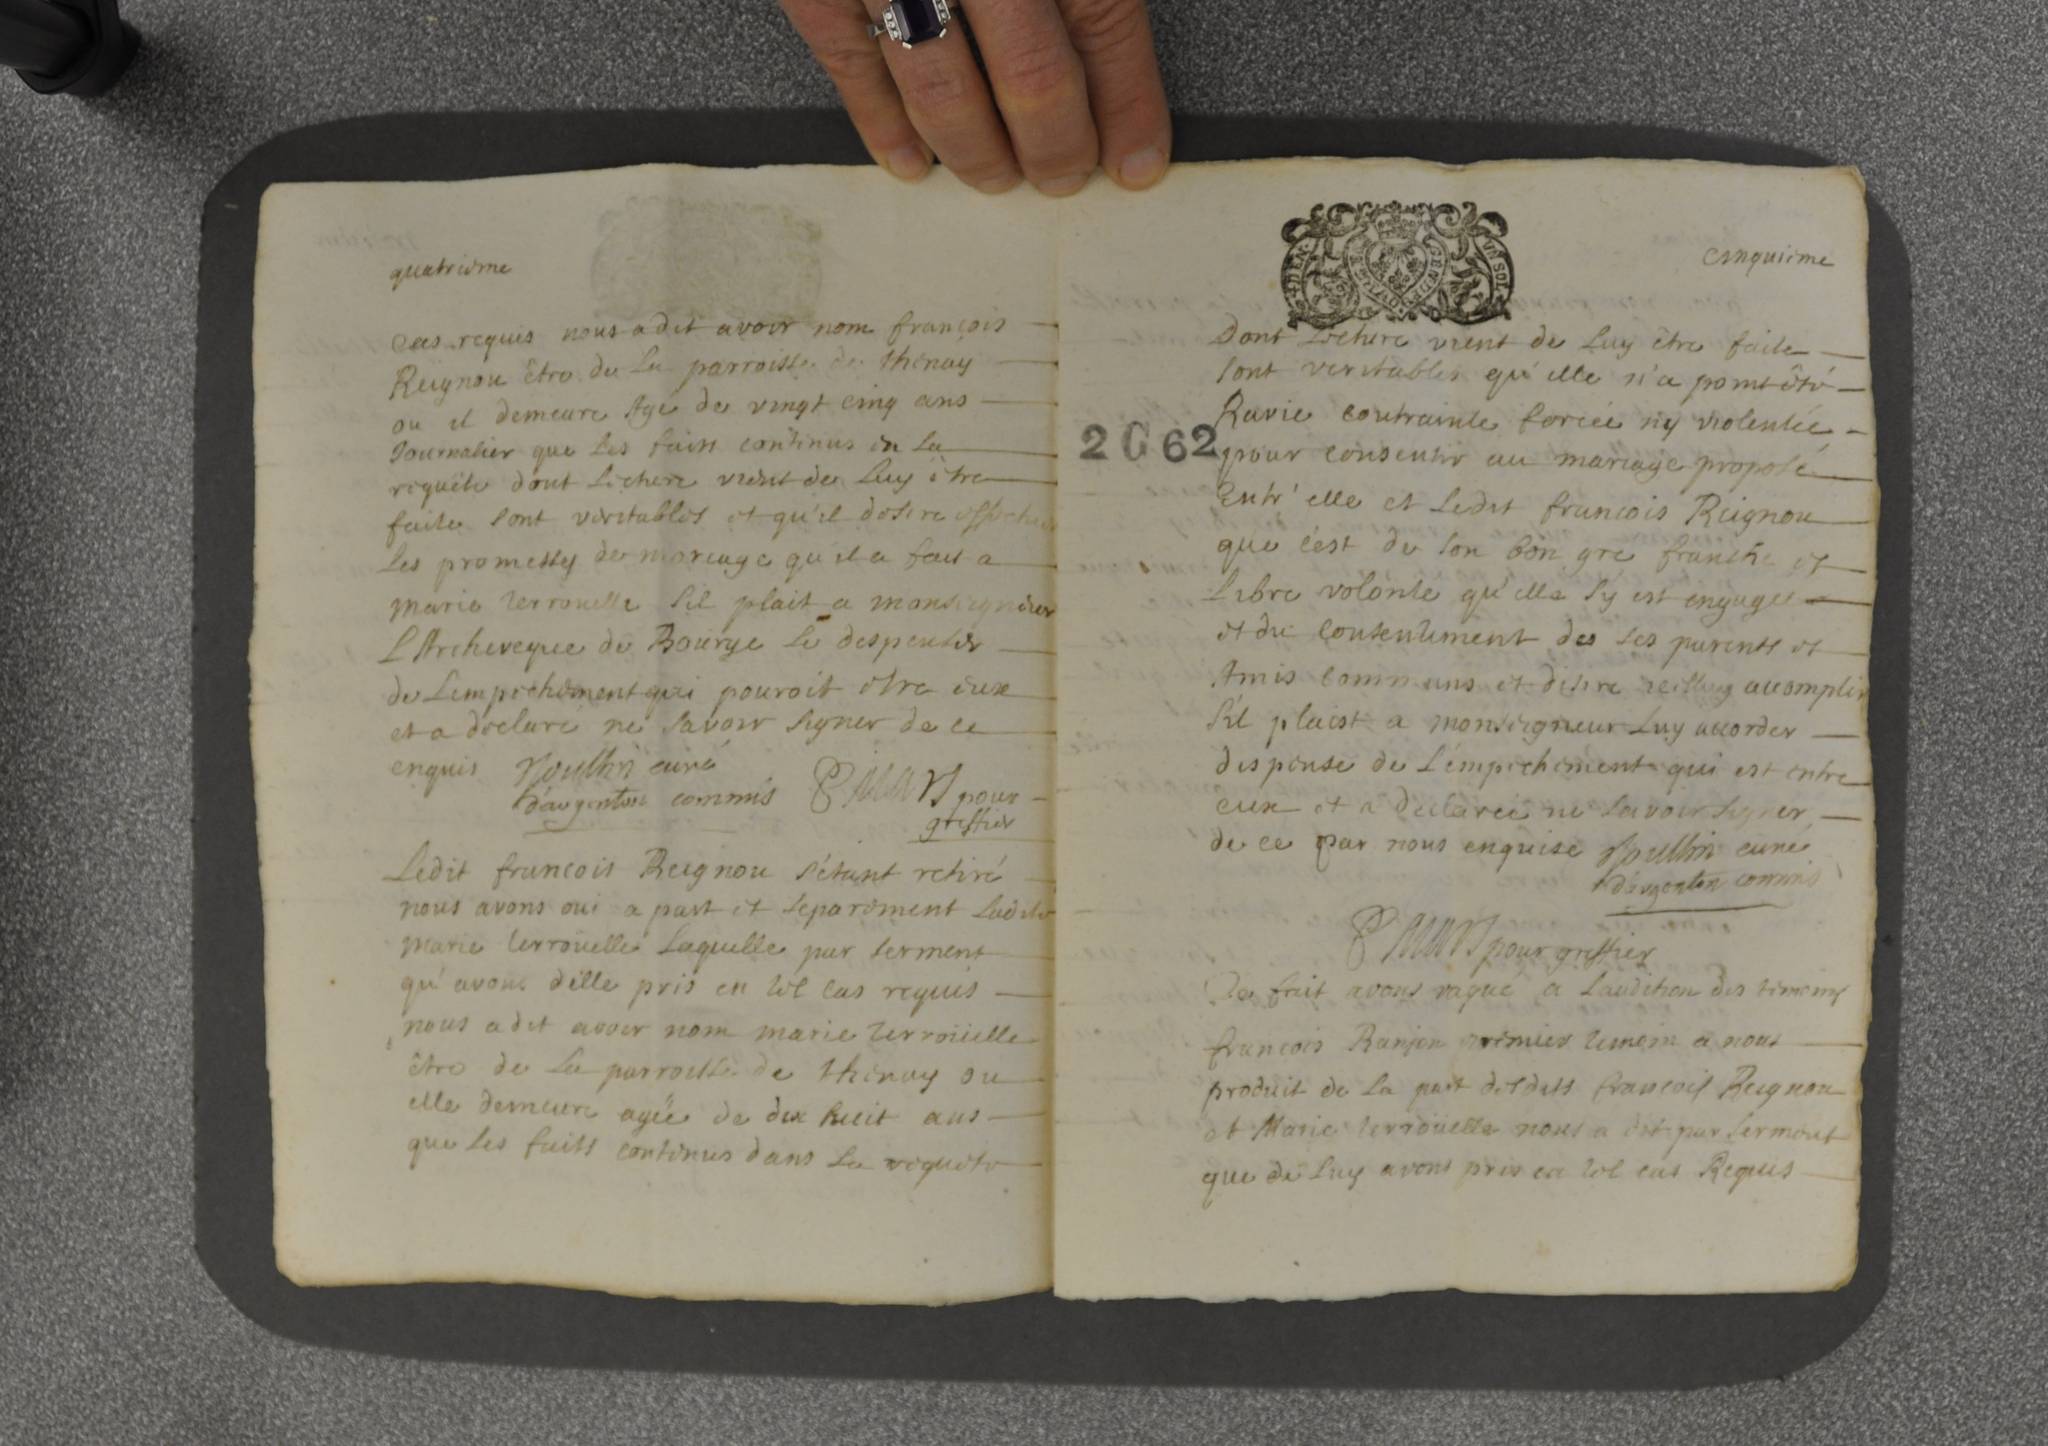 quatrieme
Cas requis nous a dit avoir nom françois
Reignou être de La parroisse de thenay
ou il demeure Agé de vingt cinq ans
Journalier que Les faits contenus en La
requête dont Lecture vient de Luy être
faite sont veritables et qu'il desire
Les promesses de mariage qu'il a fait a
marie terrouelle s'il plait a monseigneur
L'Archeveque de Bourge Le despenser
de Lempechement qui pouroit etre eux
et a declaré ne savoir signer de ce
enquis curé
d'argenton commis pour
greffier
Ledit francois Reignou s'étant retiré
nous avons oui a part et separement Ladite
marie terroüelle Laquelle par serment
qu'avons d'elle pris en tel cas requis
nous a dit avoir nom marie terroüelle
être de La parroisse de thenay ou
elle demeure agée de dix huit ans
que Les faits contenus dans La requete
cinquieme
GEN DE BOURGES
VN SOL
2 G 62
Dont Lecture vient de Luy être faite
sont veritables qu'elle n'a point été
Ravie contrainte forcée ny violentée
pour consentir au mariage proposé
Entr'elle et Ledit francois Reignou
que c'est de son bon gre franche et
Libre volonte qu'elle s'y est engagee
et du consentiment des ses parents et
Amis communs et desire accomplir
s'il plaist a monseigneur Luy accorder
dispense de L'empechement qui est entre
eux et a declareé ne savoir signer
de ce par nous enquise curé
d'argenton commis
pour greffier
De fait avons vaqué a Laudition des temoins
francois Ranjon premier temoin a nous
produit de La part desdits francois Reignou
et Marie terroüelle nous a dit par serment
que de Luy avons pris en tel cas Requis